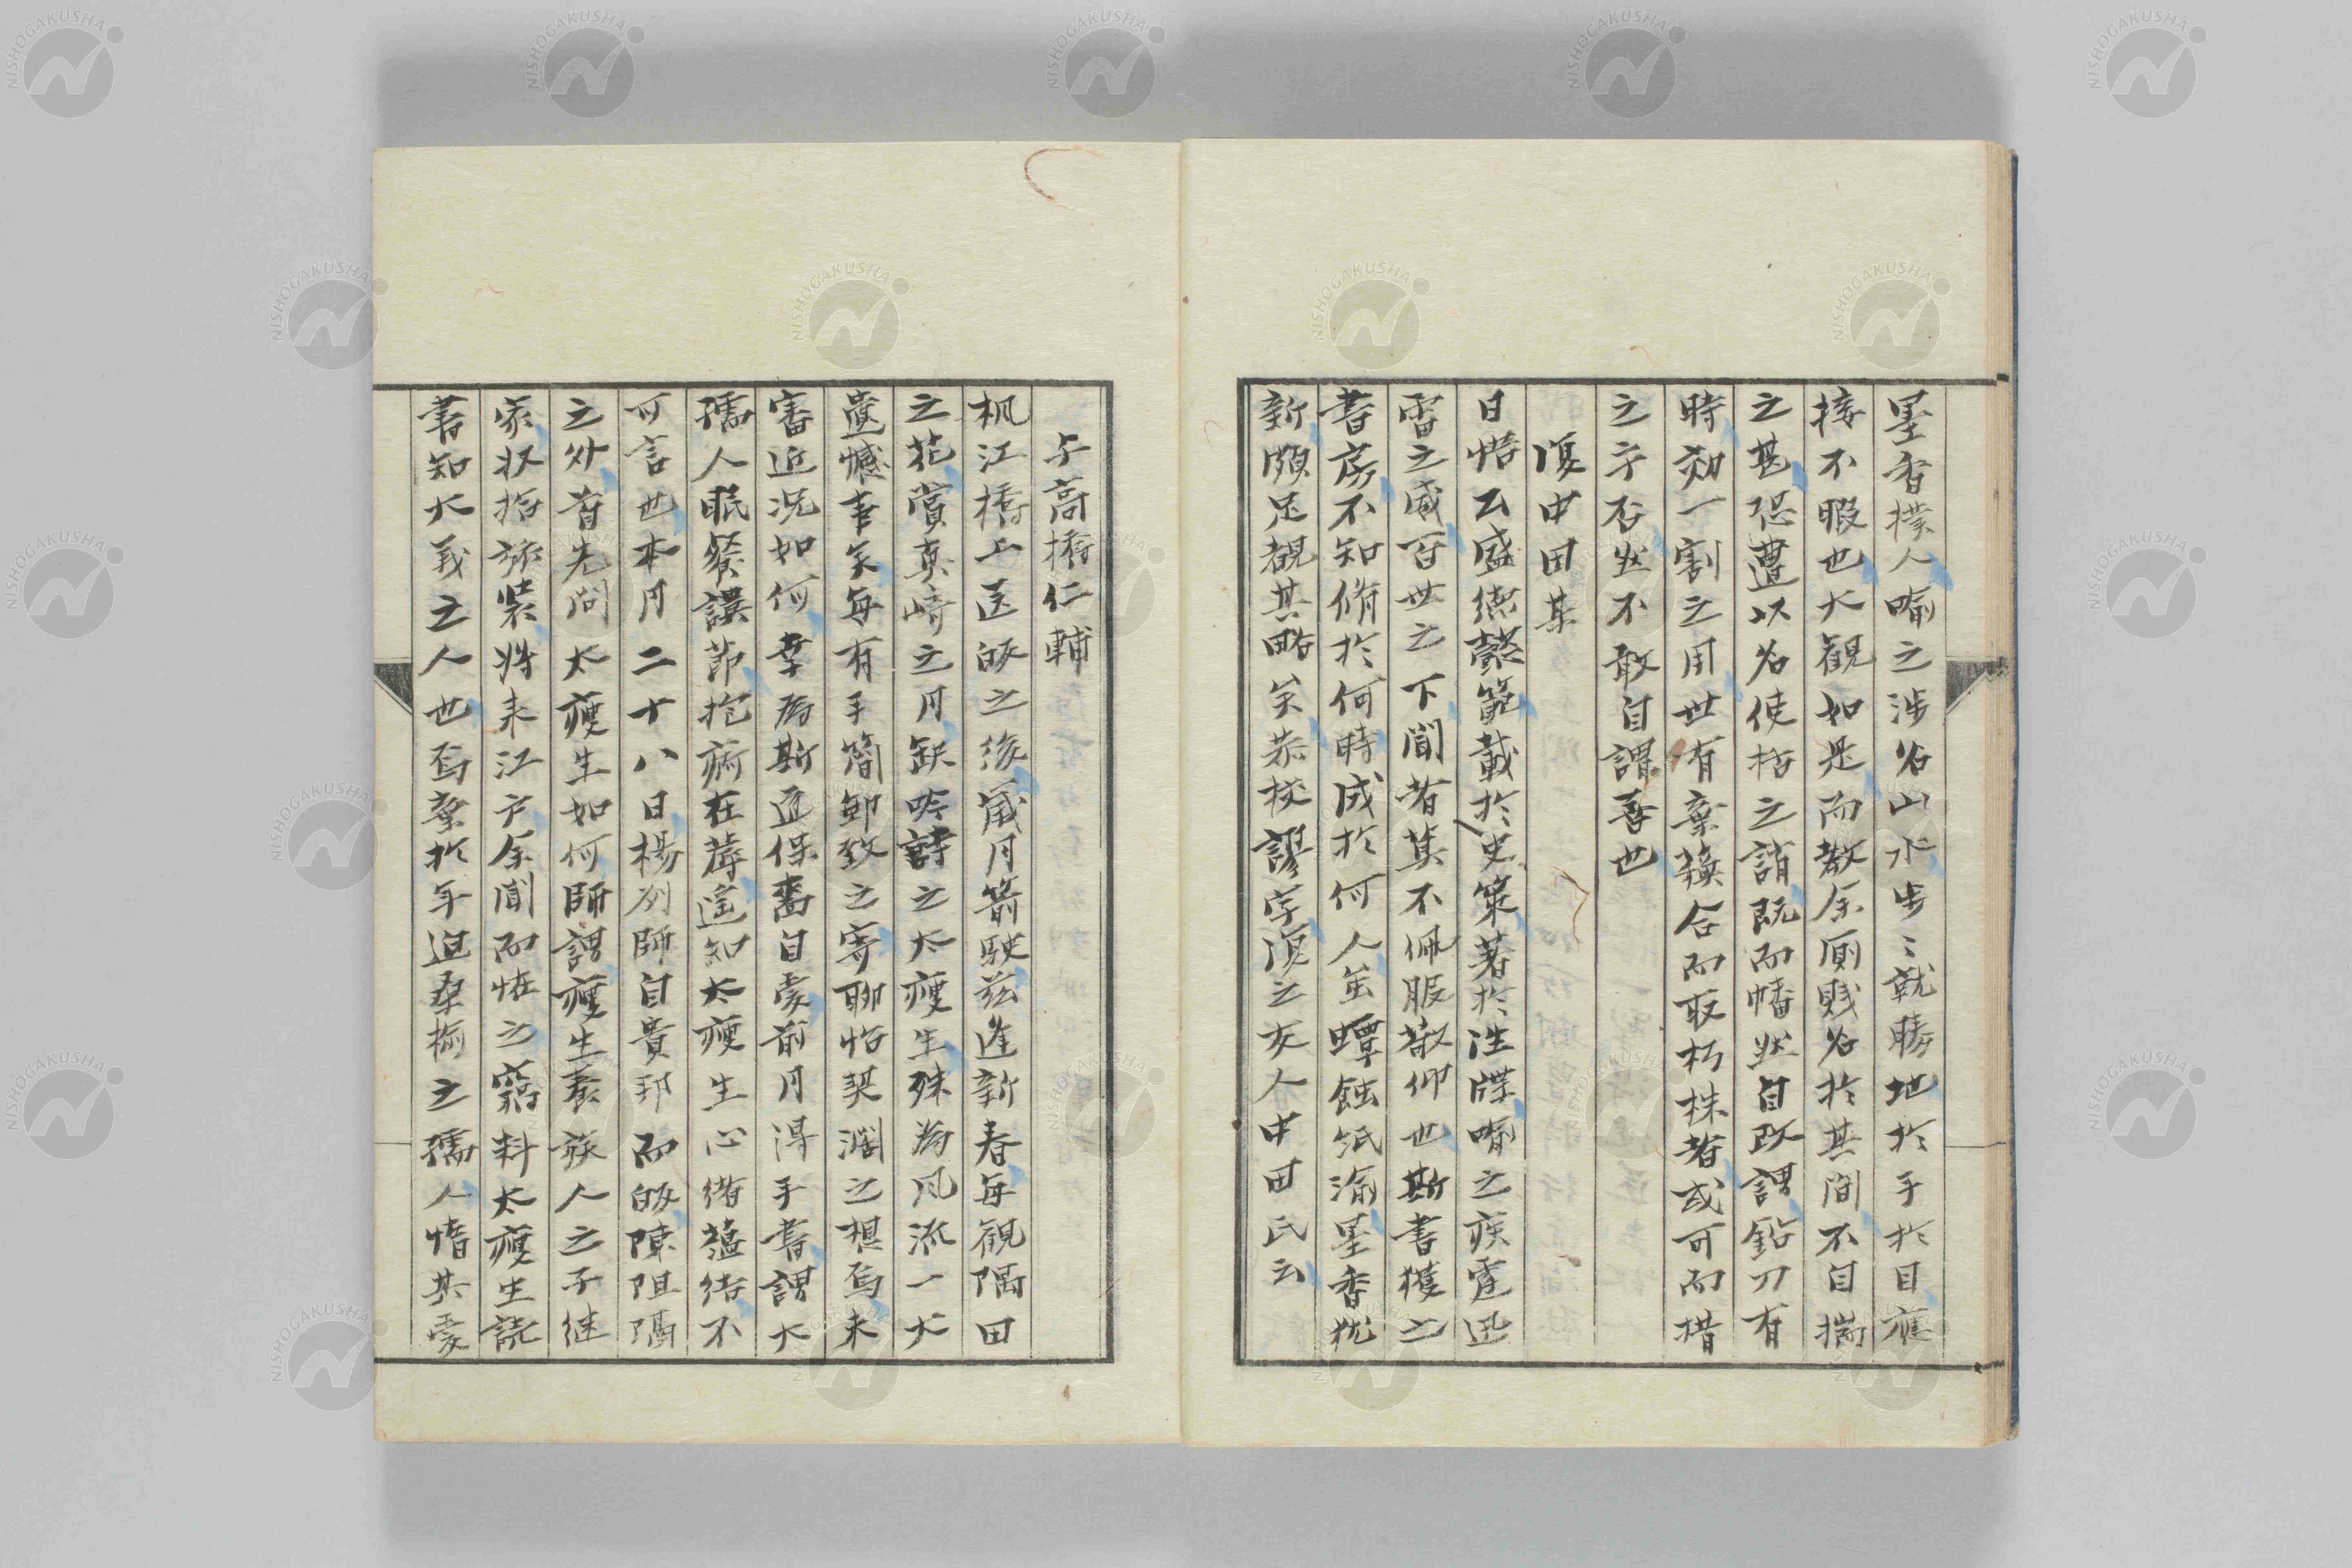 墨香撲人喻之涉名山水步〻就勝地於手於目應
接不暇也大觀如是而教余厠賤名於其間不自揣
之甚恐遭以名使括之誚既而幡然自改謂鉛刀有
時効一割之用世有棄蘓合而取朽株者或可而措
之乎否然不敢自謂善也
復中田某
日悟公盛德懿範載於史策著於諜喻之疾霆迅
雷之威百世之下聞者莫不佩服敬仰也斯書獲之
書房不知脩於何時成於何人蟫蝕紙渝墨香
新頗足觀其略矣恭校謬字復之友人中田氏云
与高橋仁輔
枫江橋上送皈之後歲月箭駛茲逢新春每觀隅田
之花賞真崎之月缺吟詩之太瘦生殊為風流一大
遺憾事矣每有手簡郵致之寄聊怡契濶之想焉未
審近況如何幸為斯道保嗇自愛前月得手書謂大
孺人眠餐誤節抱痾在蓐遙知太瘦生心緒蘊結不
可言也本月二十八日楊列師自貴邦而皈陳阻隔
之外首先問太瘦生如何師謂瘦生養族人之子継
家收拾旅裝将来江户余聞而怪之竊料太瘦生読
書知大義之人也焉棄於年迫桑榆之孺人惜其愛